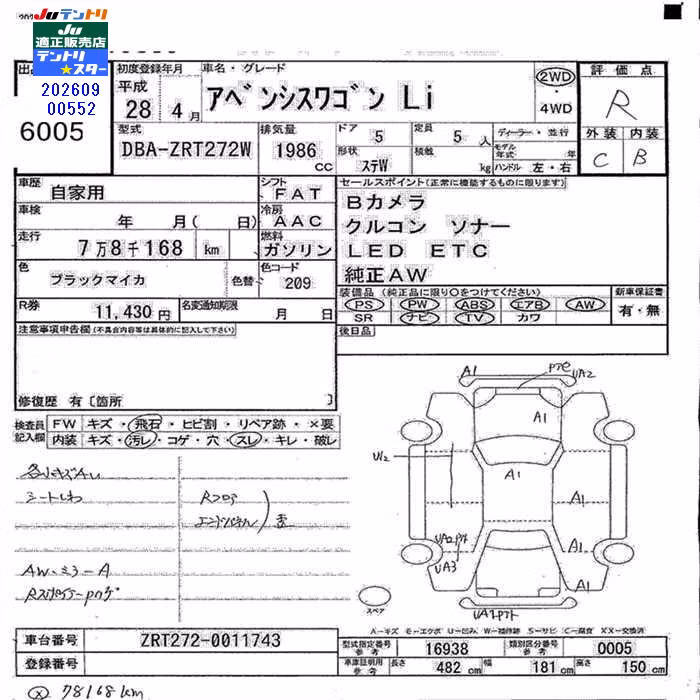 ワハハ JUテントリ
JU
適正販売店
テントリ
★スター
202609
00552
6005
初度登録年月
平成
28 4月
車名・グレード
アベンシスワゴン Li
2WD
・
4WD
評価点
R
外装 内装
C B
型式
DBA-ZRT272W
排気量
1986 cc
ドア 5
形状 ステW
定員 5 人
積載 kg
ディーラー・並行
モデル年式 年
ハンドル 左・右
車歴
自家用
シフト FAT
車検
年 月( 日)
冷房 AAC
走行
7万8千168 km
燃料 ガソリン
色
ブラックマイカ
色替
色コード
209
R券
11,430円
名変通知期限
月 日
セールスポイント(正常に機能するものに限ります)
Bカメラ
クルコン ソナー
LED ETC
純正AW
装備品(純正品に限り○をつけてください)
PS PW ABS エアB AW
SR ナビ TV カワ
新車保証書
有・無
後日品
注意事項申告欄(不具合内容等は具体的に記入して下さい)
修復歴 有〔箇所 〕
検査員
記入欄
FW キズ・飛石・ヒビ割・リペア跡・×要
内装 キズ・汚レ・コゲ・穴・スレ・キレ・破レ
各小キズAU
シートしわ
Rフロア
エンドパネル
AW・ミラーA
A1
UA2
A1
U12
A1
A1
UA3
A1
A1
スペア
A-キズ M-エクボ U-凹み W-補修跡 S-サビ C-腐食 XX-交換済
車台番号
ZRT272-0011743
登録番号
型式指定番号
参考
16938
類別区分番号
参考
0005
車庫証明用
参考
長さ 482 cm
幅 181 cm
高さ 150 cm
78168km